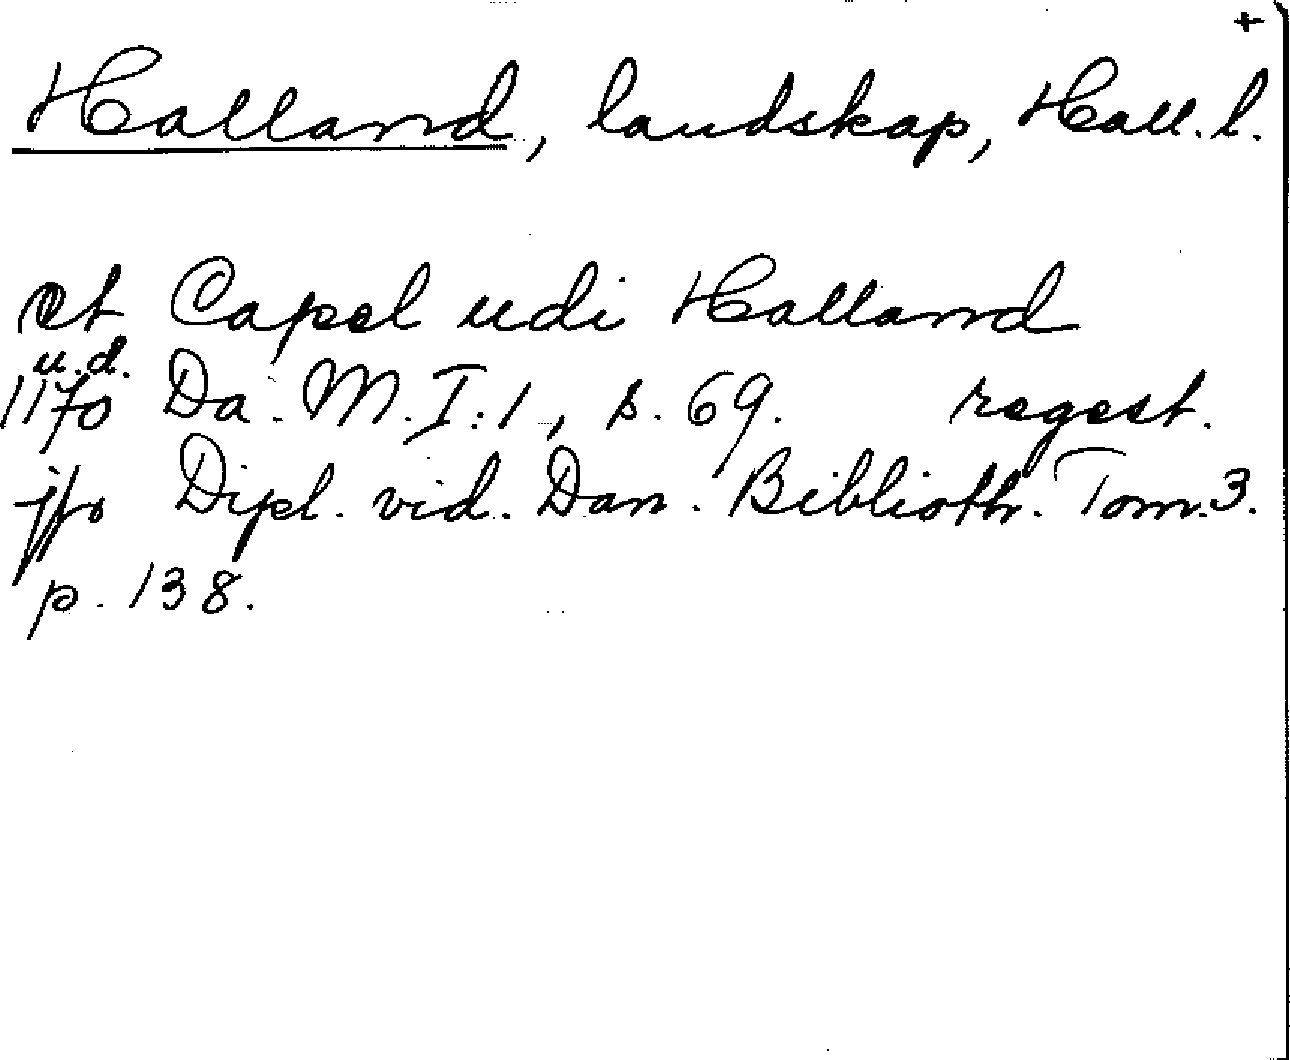 +
Halland, landskap, Hall. l.
et Capel udi Halland
u.d.
1170 Da. M. I:1, s. 69. regest.
jfr Dipl. vid. Dan. Biblioth. Tom. 3.
p. 138.